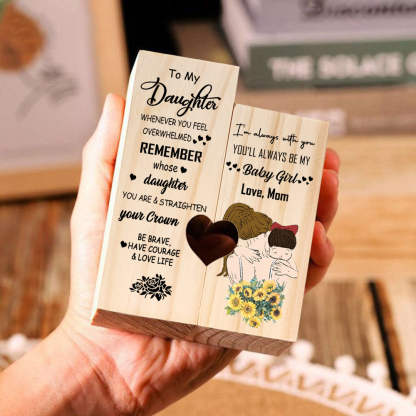 To My
Daughter
WHENEVER YOU FEEL
OVERWHELMED
REMEMBER
whose
daughter
YOU ARE & STRAIGHTEN
your Crown
BE BRAVE,
HAVE COURAGE
& LOVE LIFE
I'm always with you
YOU'LL ALWAYS BE MY
Baby Girl
Love, Mom
THE SOLACE O